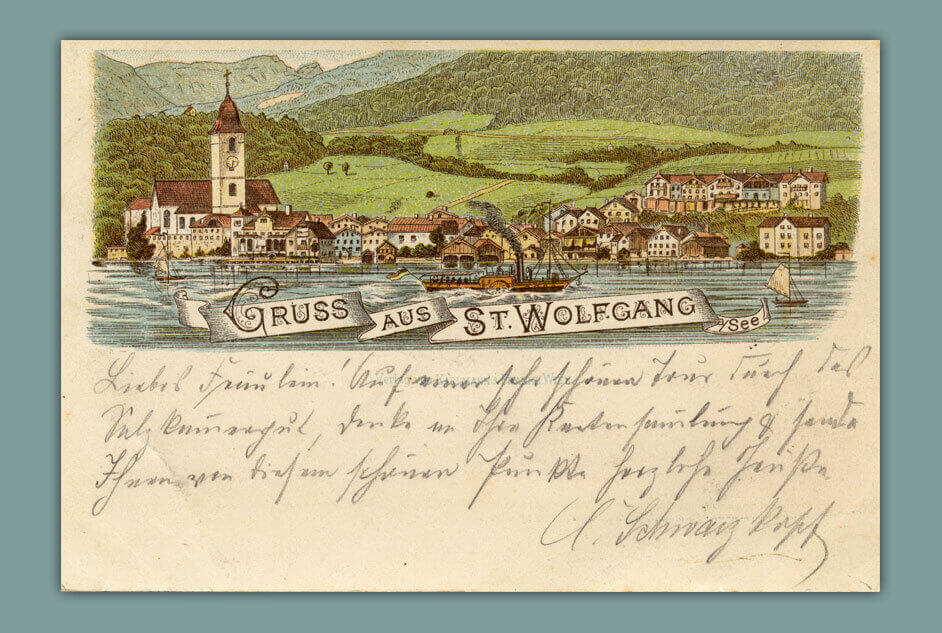 GRUSS AUS ST. WOLFGANG a/See
Liebes Fräulein! Auf einer sehr schönen Tour durch das
Salzkammergut, denke an Ihre Kartensamlung & sende
Ihnen von diesem schönen Punkte herzlche Grüße
C. Schwarzkopf